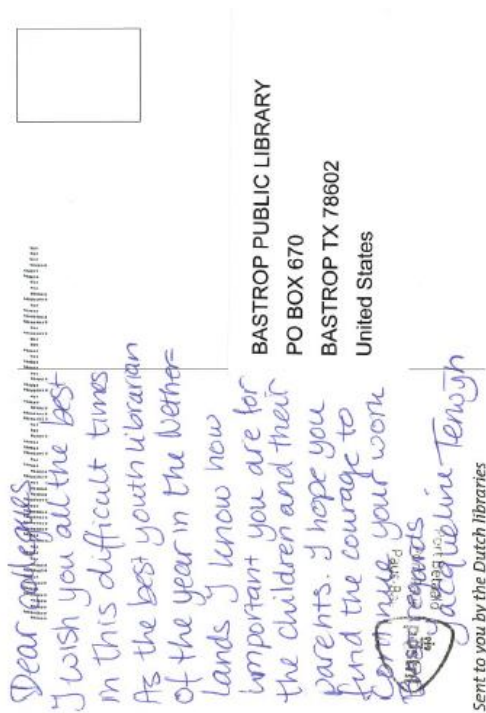 Dear colleagues
I wish you all the best
in this difficult times
As the best youth librarian
of the year in the Nether=
lands I know how
important you are for
the children and their
parents. I hope you
find the courage to
continue your work
regards
Jacqueline
Sent to you by the Dutch libraries
BASTROP PUBLIC LIBRARY
PO BOX 670
BASTROP TX 78602
United States